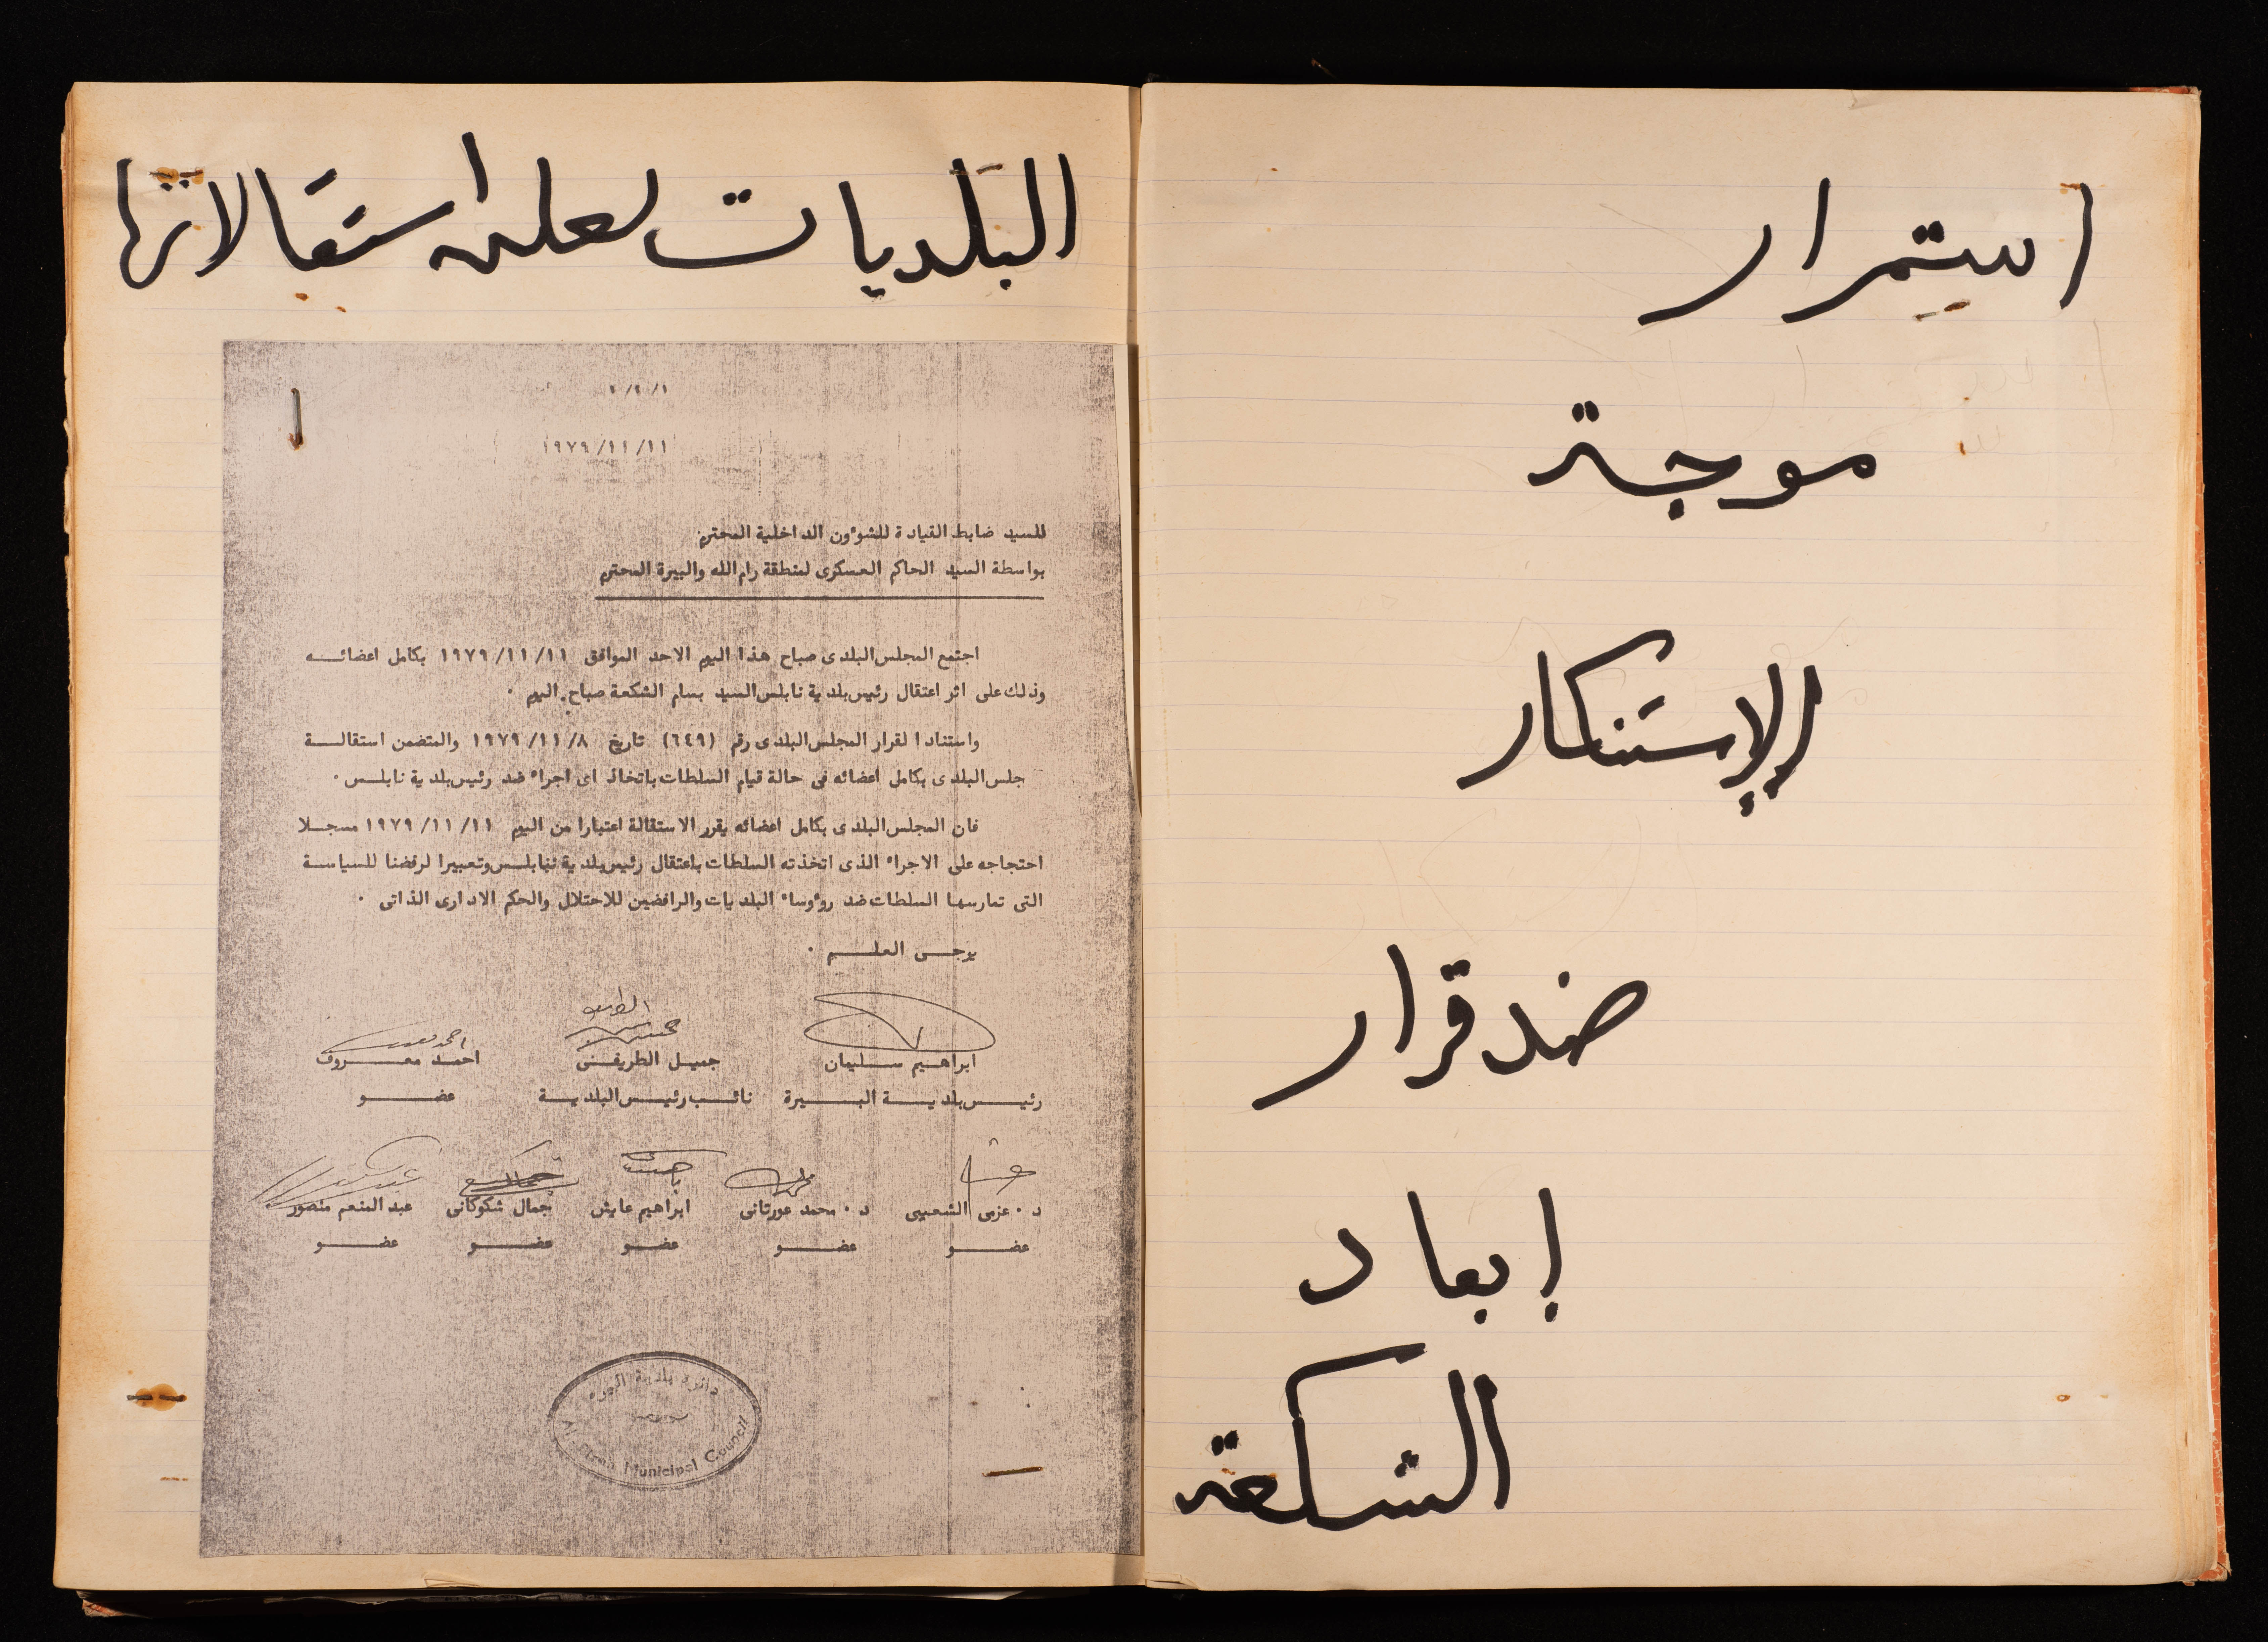 استمرار
موجة
الإستنكار
ضد قرار
إبعاد
الشكعة
البلديات تعلن استقالاتها
١٩٧٩/١١/١١
للسيد ضابط القيادة للشوٴون الداخلية المحترم
بواسطة السيد الحاكم العسكرى لمنطقة رام الله والبيرة المحترم
اجتمع المجلس البلدى صباح هذا اليوم الاحد الموافق ١٩٧٩/١١/١١ بكامل اعضائه
وذلك على اثر اعتقال رئيس بلدية نابلس السيد بسام الشكعة صباح اليوم ٠
واستنادا لقرار المجلس البلدى رقم (٦٤٩) تاريخ ١٩٧٩/١١/٨ والمتضمن استقالة
جلس البلدى بكامل اعضائه فى حالة قيام السلطات باتخاذ اى اجراء ضد رئيس بلدية نابلس ٠
فان المجلس البلدى بكامل اعضائه يقرر الاستقالة اعتبارا من اليوم ١٩٧٩/١١/١١ مسجلا
احتجاجه على الاجراء الذى اتخذته السلطات باعتقال رئيس بلدية نبابلس وتعبيرا لرفضنا للسياسة
التى تمارسها السلطات ضد روٴوساء البلديات والرافضين للاحتلال والحكم الادارى الذاتى ٠
يرجى العلم ٠
ابراهيم سليمان جميل الطريفى احمد معروف
رئيس بلدية البيرة نائب رئيس البلدية عضو
د ٠ عزمى الشعيبى د ٠ محمد عورتانى ابراهيم عايش جمال شكوكانى عبد المنعم منصور
عضو عضو عضو عضو عضو
دائرة بلدية البيرة
Al Bireh Municipal Council